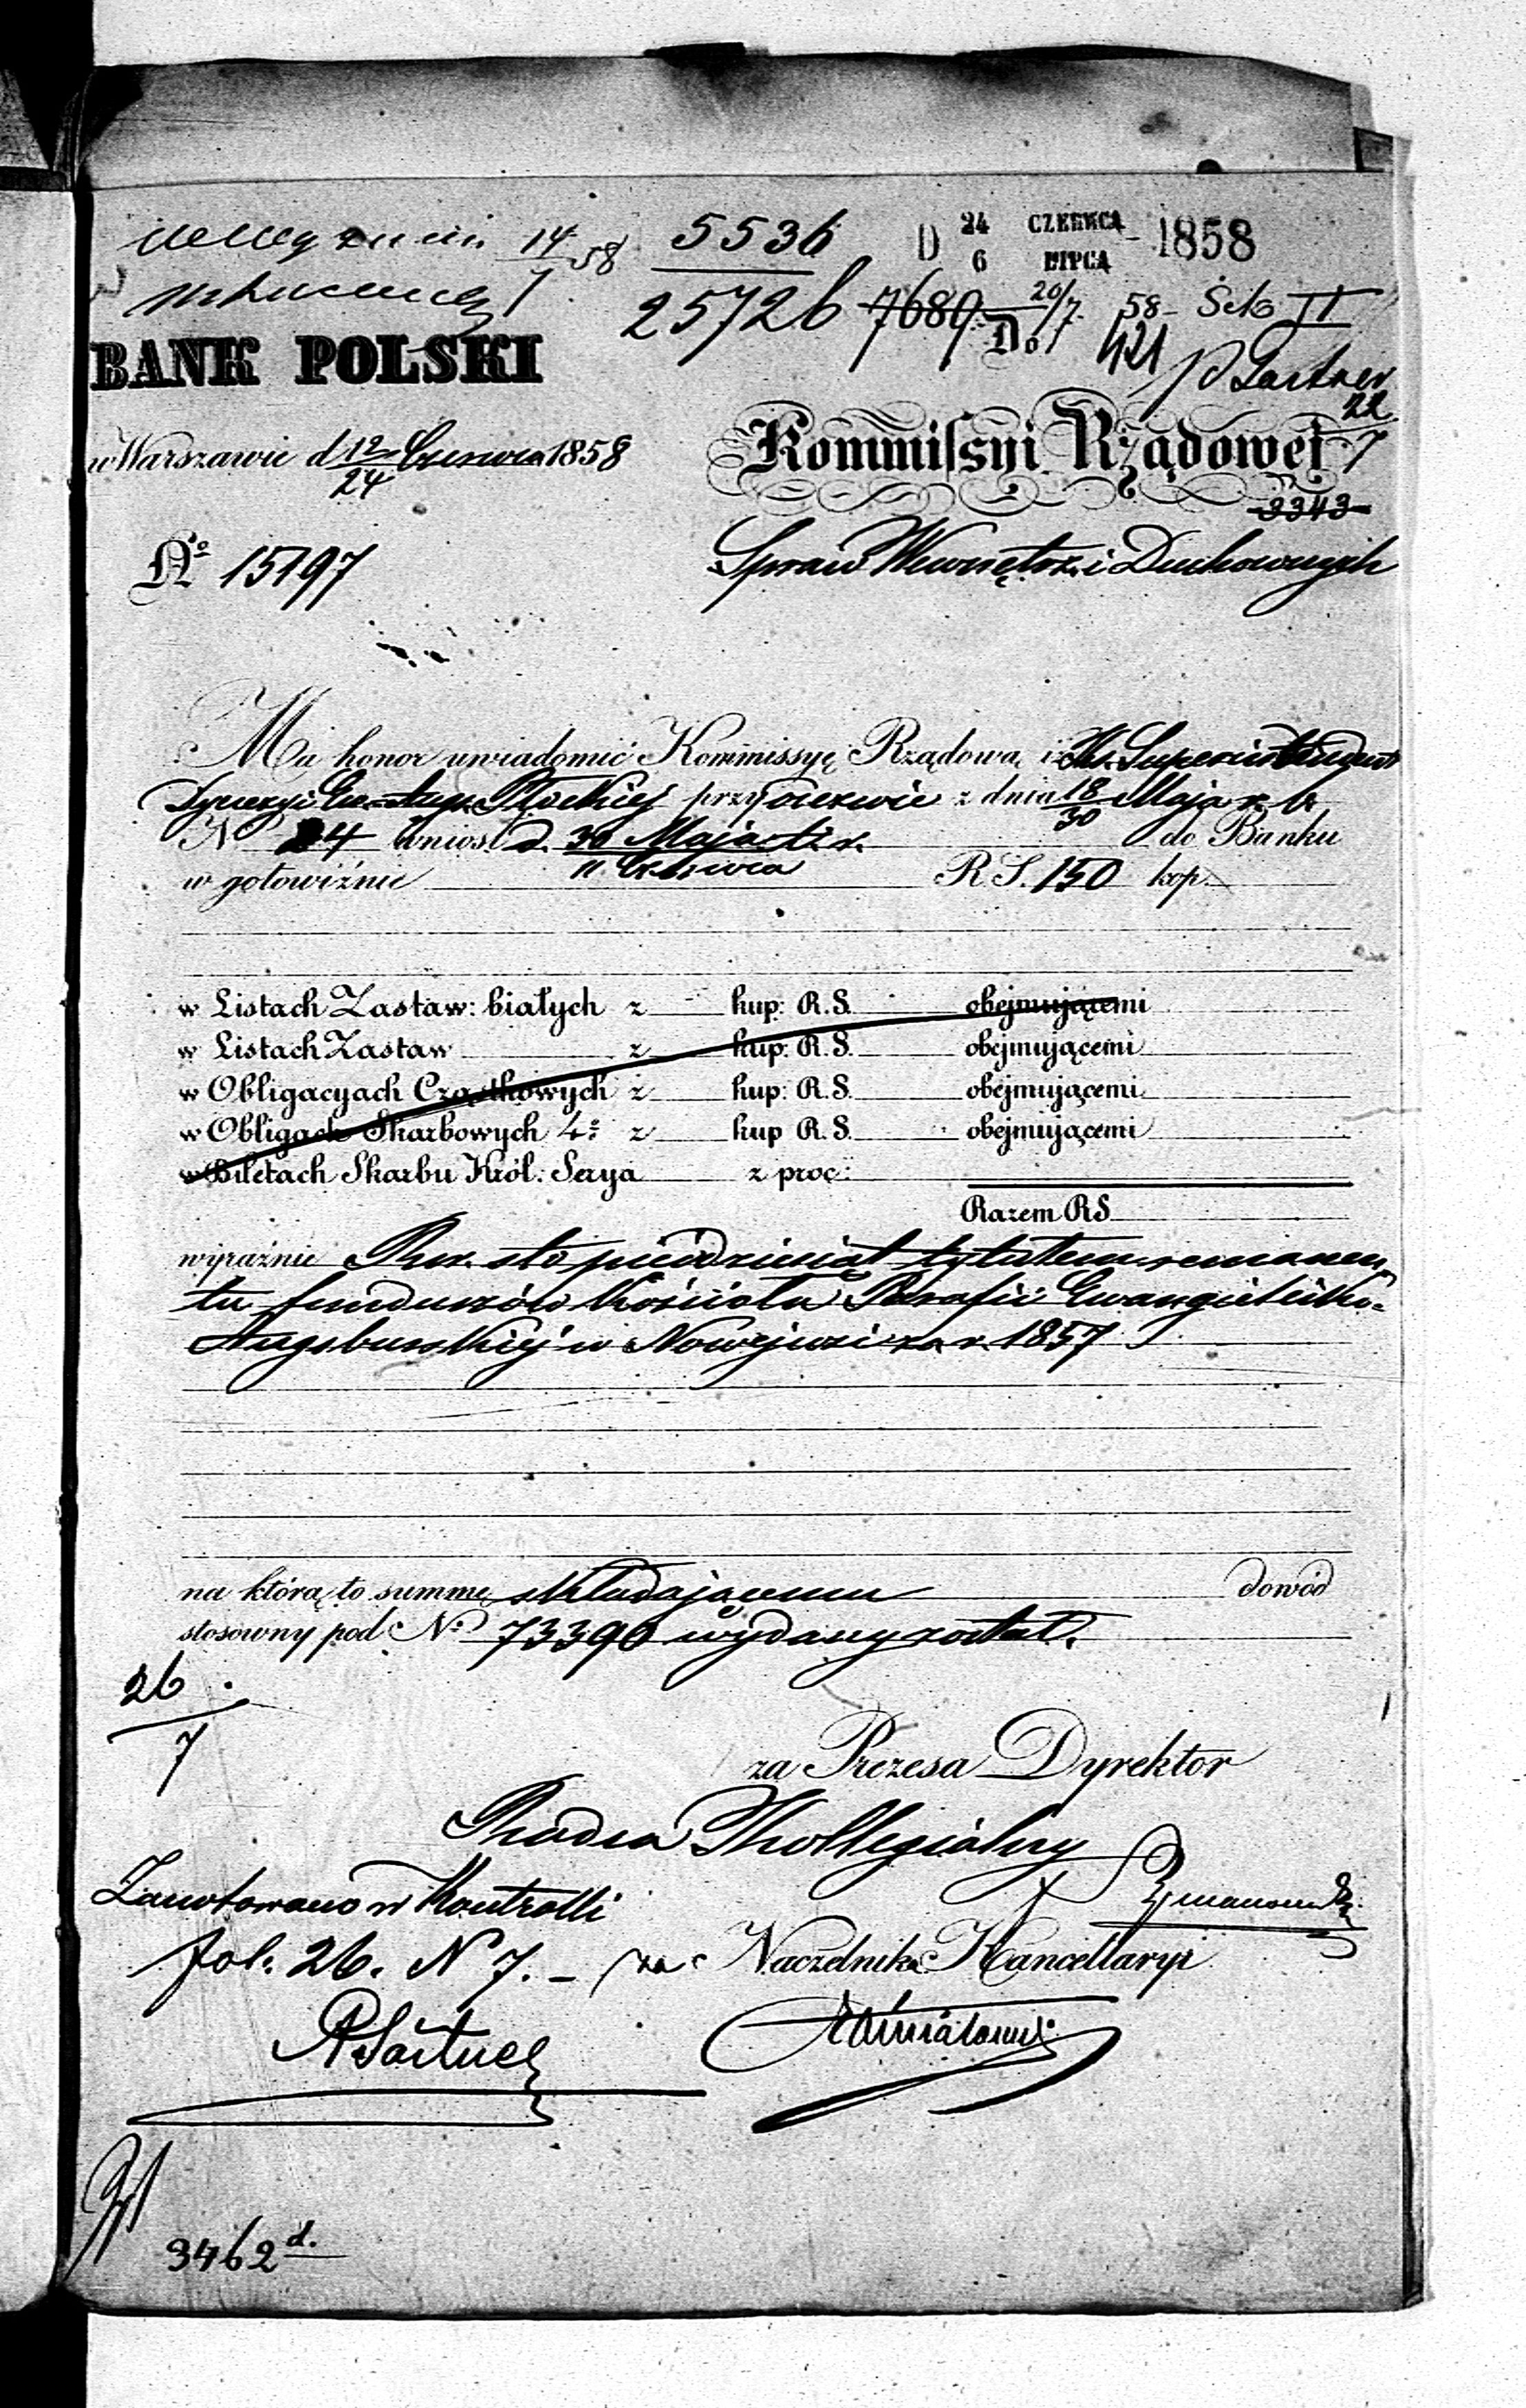 14/7 58 5536 D 24 CZERWCA 6 LIPCA 1858
25726 7689 20/7 58 Sek II
BANK POLSKI Do 421
22/7
w Warszawie d 12/24 Czerwca 1858 Kommissyi Rządowej
3343
No 15197 Spraw Wewnętrz. i Duchownych
Ma honor uwiadomić Kommissyę Rządową, iż Superintendent
Dyecezyi Ew. Aug. Płockiej przy odezwie z dnia 18/30 Maja r. b.
N 24 wniosł d. 30 Maja t. r. do Banku
11 Czerwca
w gotowiźnie R S. 150 kop.
w Listach Zastaw: białych z kup: R. S. obejmującemi
w Listach Zastaw z kup: R. S. obejmującemi
w Obligacyach Cząstkowych z kup: R. S. obejmującemi
w Obligach Skarbowych 4o z kup R. S. obejmującemi
w Biletach Skarbu Król: Serya z proc:
Razem RS
wyraźnie Rsr. sto pięćdziesiąt tytułem remanen
tu funduszów Kościoła Parafii Ewangielicko-
Augsburskiej w Nowejwsi za r. 1857
na którą to summę składającemu dowód
stosowny pod No 73390 wydany został.
26
7
za Prezesa Dyrektor
Radca Kollegialny
Zanotowano w Kontrolli
fol. 26. N 7. – za Naczelnika Kancellaryi
3462 d.